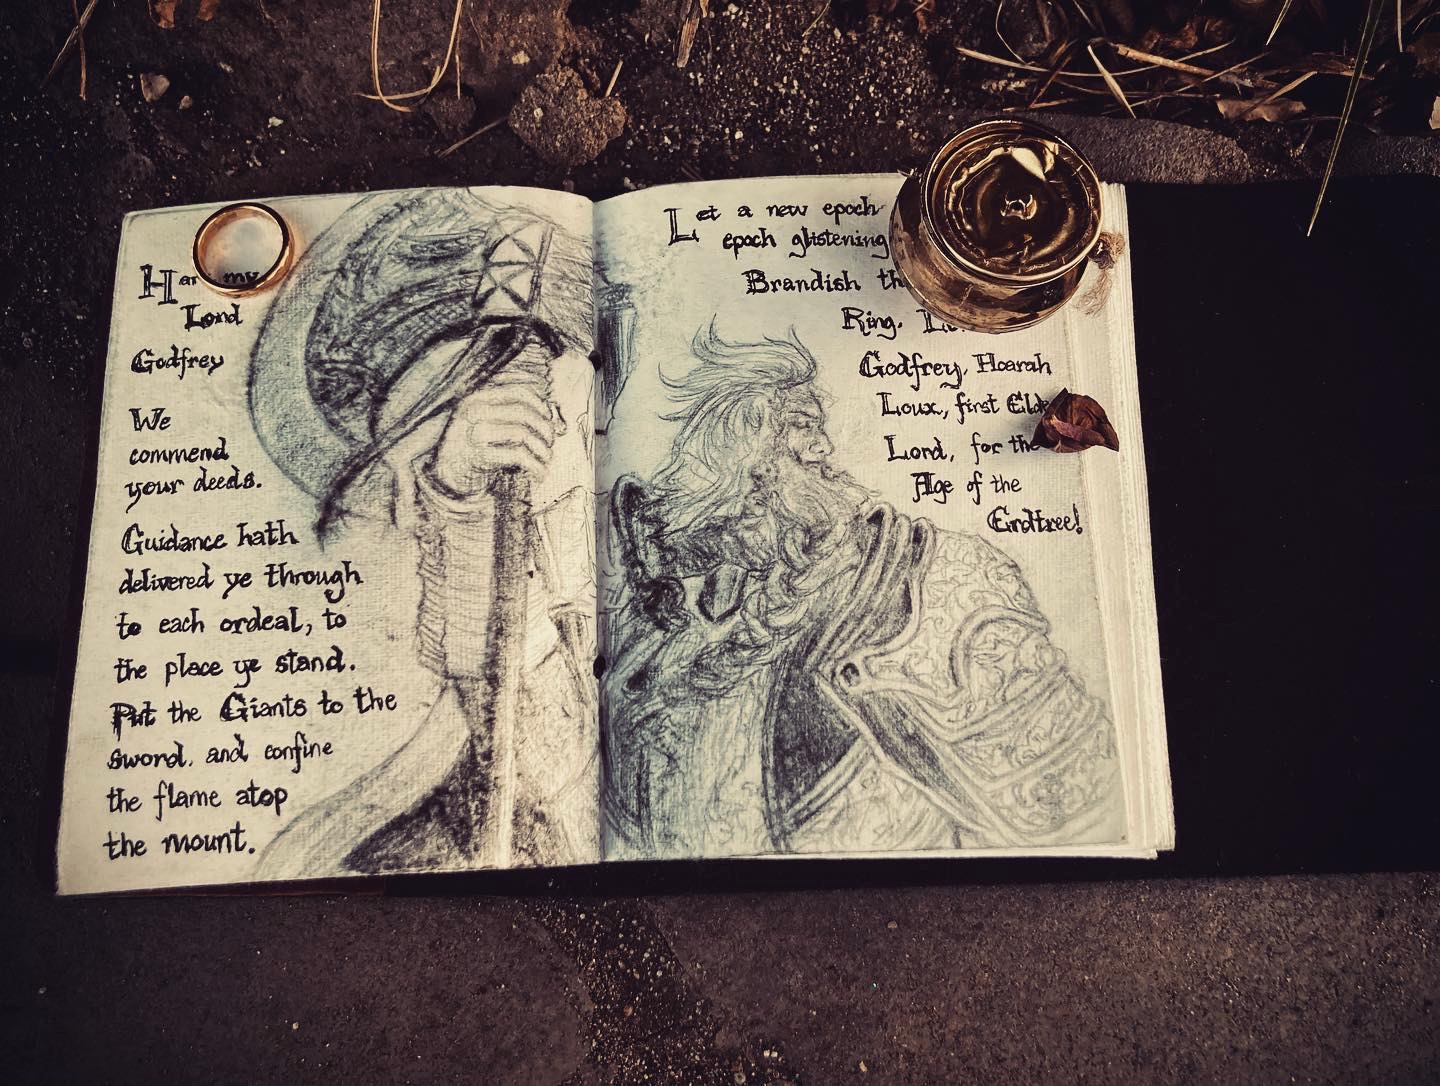 my
Lord
Godfrey
We
commend
your deeds.
Guidance hath
delivered ye through
to each ordeal, to
the place ye stand.
Put the Giants to the
sword, and confine
the flame atop
the mount.
Let a new epoch
epoch glistening
Brandish
Ring.
Godfrey, Hoarah
Loux, first
Lord, for the
Age of the
Erdtree!